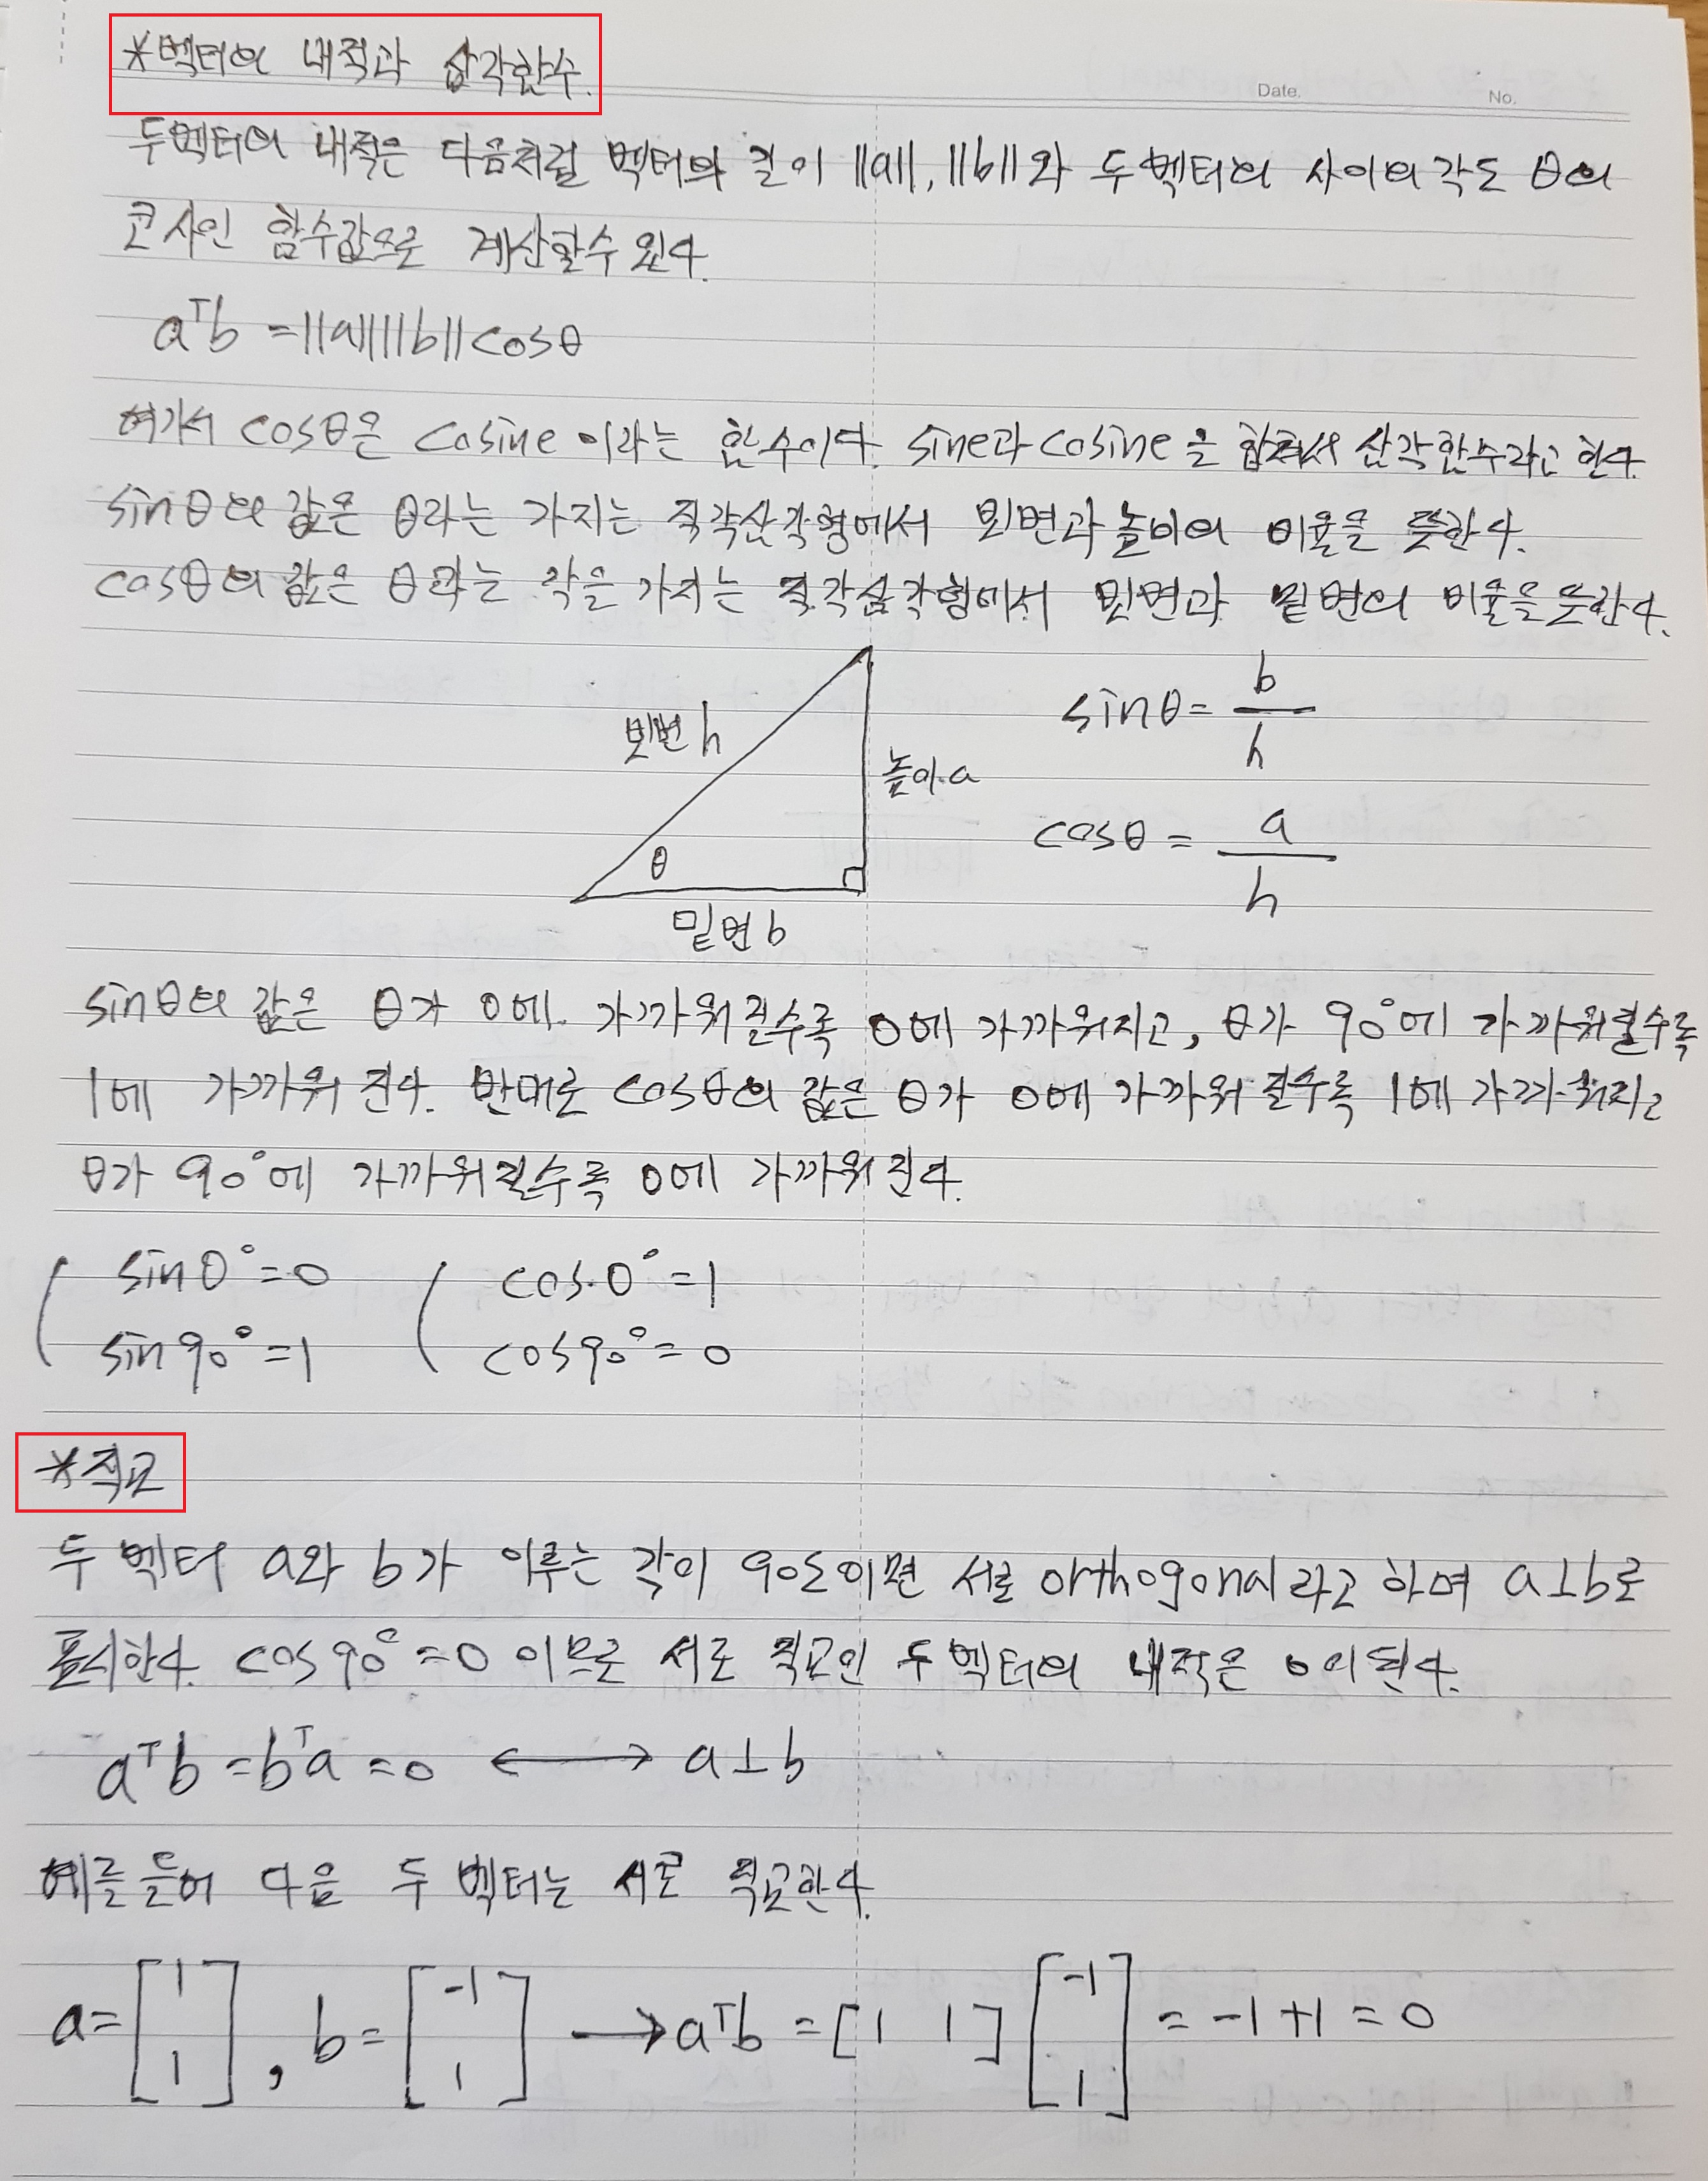 *벡터의 내적과 삼각함수.
Date.
No.
두 벡터의 내적은 다음처럼 벡터의 길이 ||a||, ||b|| 와 두 벡터의 사이의 각도 θ의
코사인 함수값으로 계산할수 있다.
aᵀb = ||a||||b|| cosθ
여기서 cosθ은 cosine 이라는 함수이다. sine과 cosine을 합쳐서 삼각함수라고 한다.
sinθ의 값은 θ라는 가지는 직각삼각형에서 빗변과 높이의 비율을 뜻한다.
cosθ의 값은 θ라는 각을 가지는 직각삼각형에서 빗변과 밑변의 비율을 뜻한다.
빗변 h
높이 a
θ
밑변 b
sinθ = b/h
cosθ = a/h
sinθ의 값은 θ가 0에 가까워질수록 0에 가까워지고, θ가 90°에 가까워질수록
1에 가까워 진다. 반대로 cosθ의 값은 θ가 0에 가까워 질수록 1에 가까워지고
θ가 90°에 가까워질수록 0에 가까워 진다.
sin0° = 0 cos0° = 1
sin90° = 1 cos90° = 0
*직교
두 벡터 a와 b가 이루는 각이 90도이면 서로 orthogonal 라고 하며 a⊥b로
표시한다. cos90° = 0 이므로 서로 직교인 두 벡터의 내적은 0이 된다.
aᵀb = bᵀa = 0 ⟷ a⊥b
예를 들어 다음 두 벡터는 서로 직교한다.
a = [1 1], b = [-1 1] → aᵀb = [1 1] [-1 1] = -1 + 1 = 0